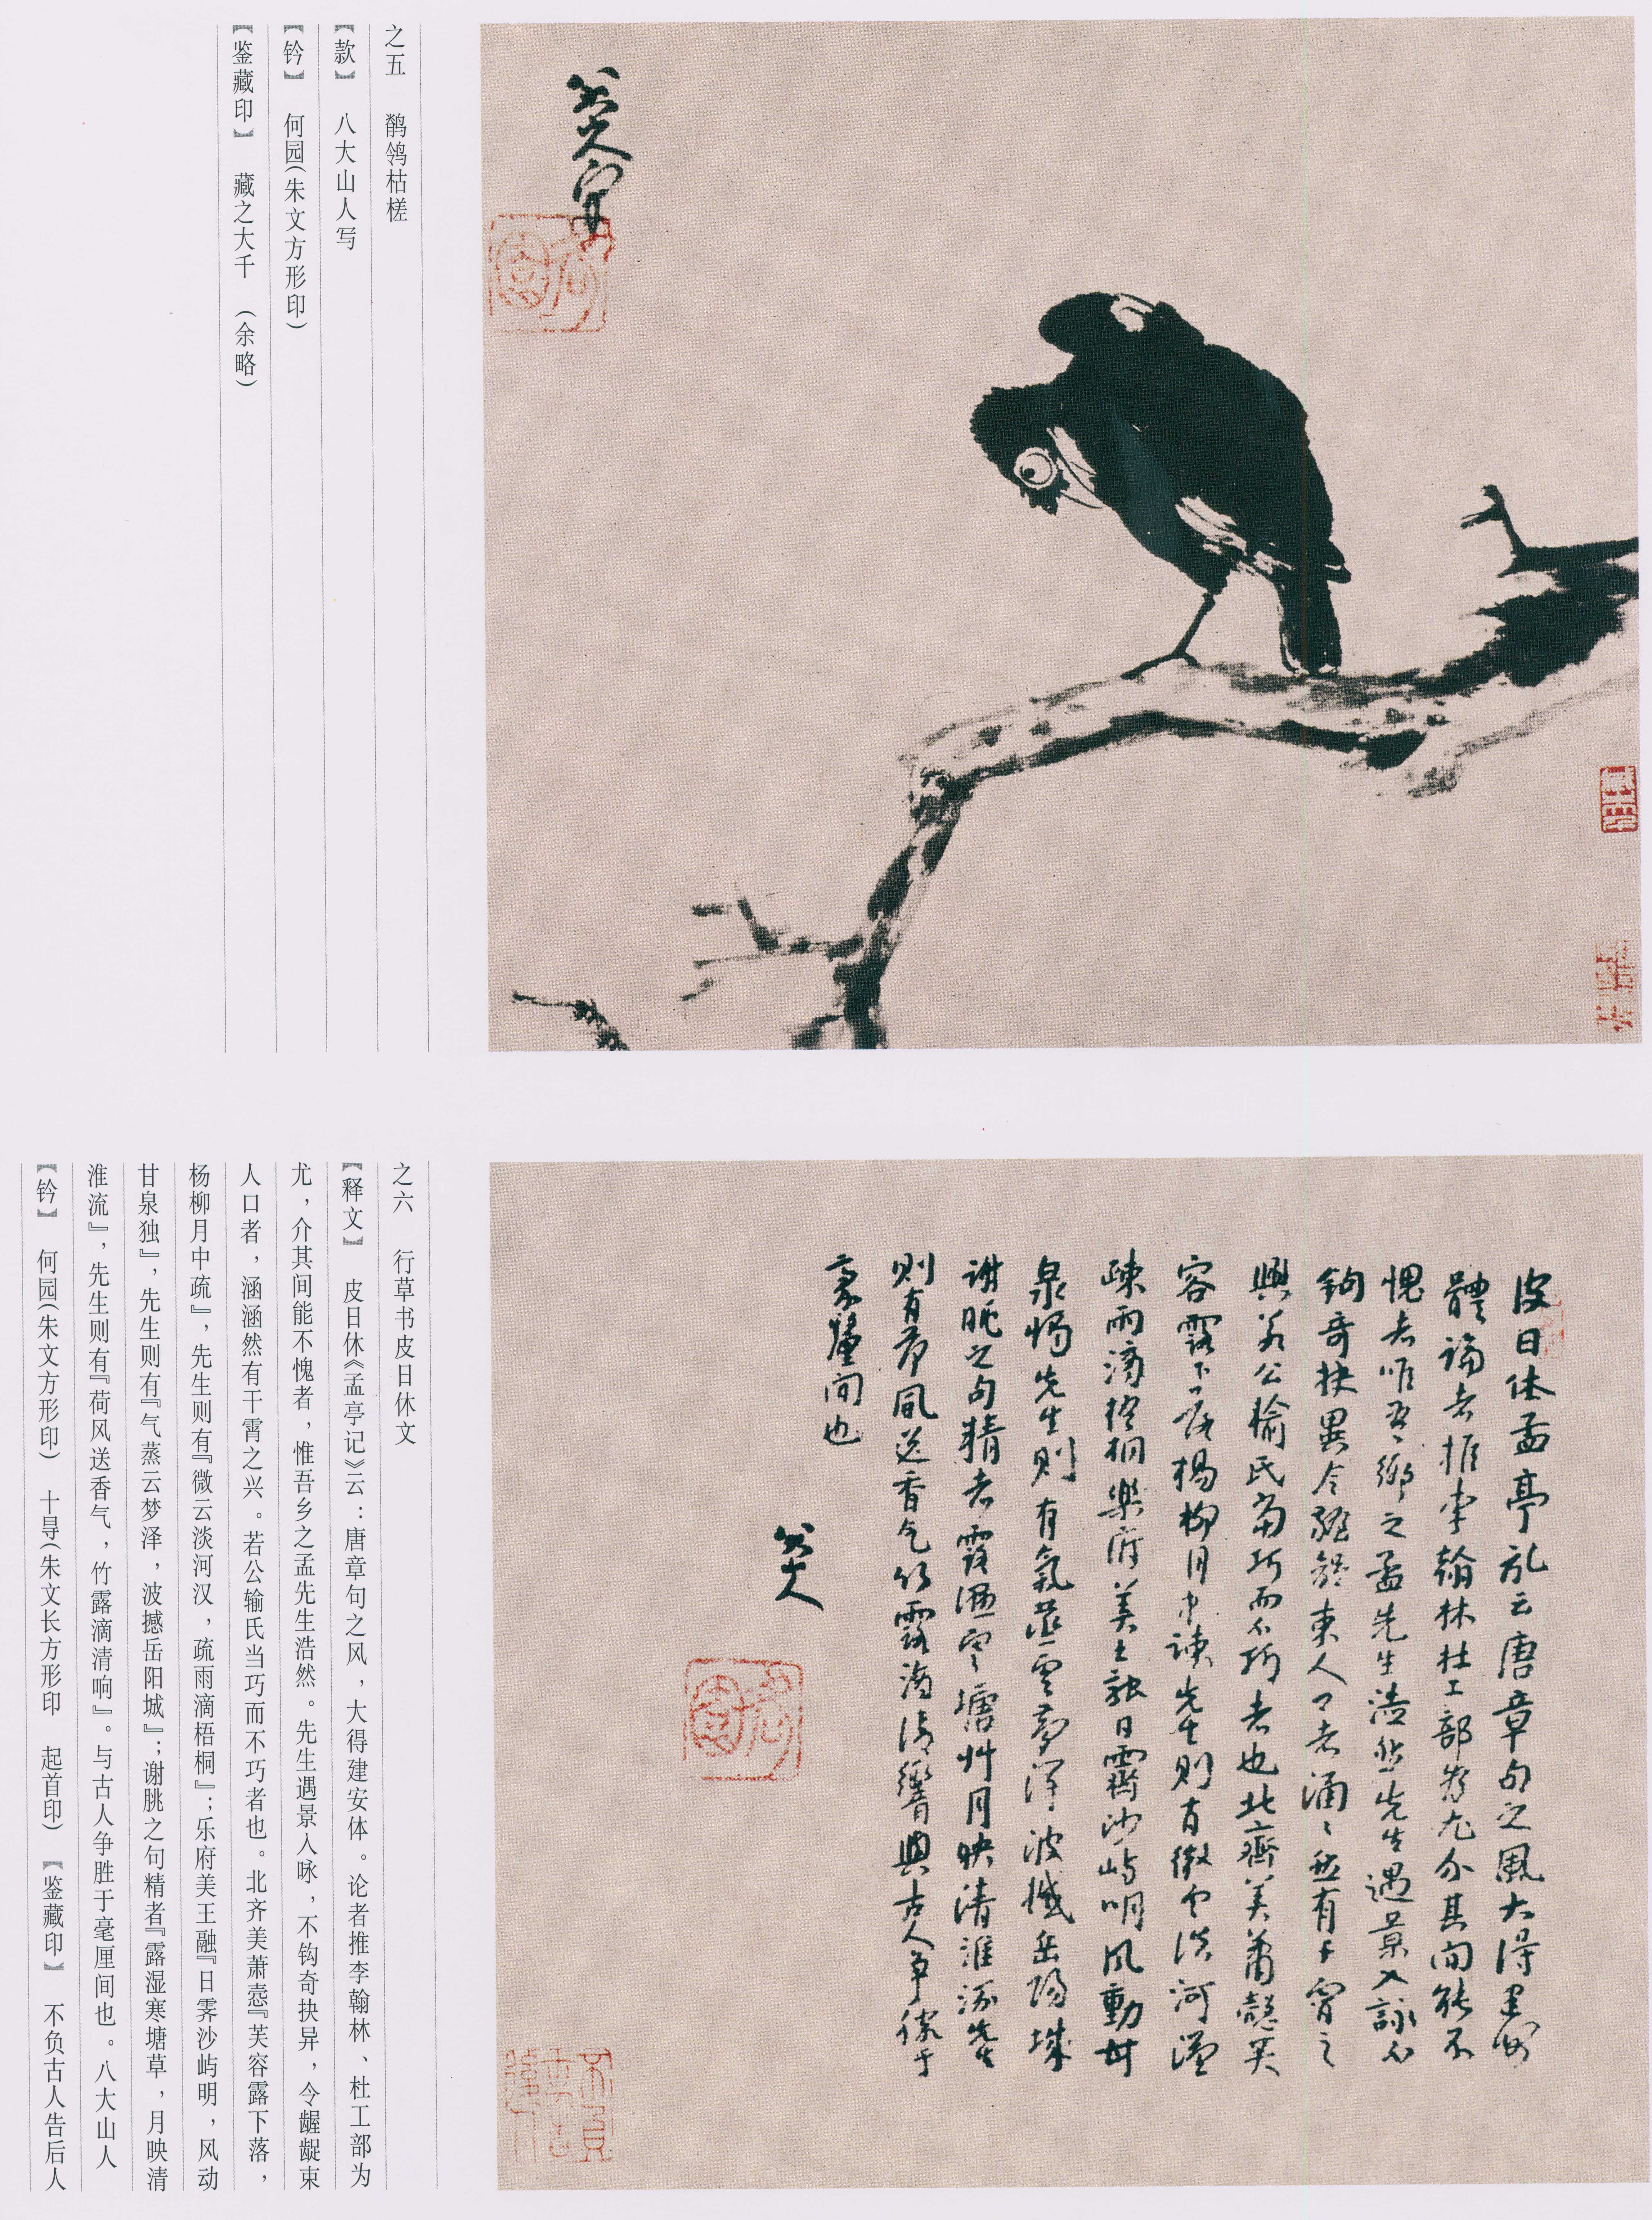 之五 鹡鸰枯槎
【款】 八大山人写
【钤】 何园(朱文方形印)
【鉴藏印】 藏之大千 (余略)
八大山人写
何園
藏之大千
皮日休孟亭記云唐章句之風大得建安
體論者推李翰林杜工部為尤介其間能不
愧者惟吾鄉之孟先生浩然先生遇景入詠不
鉤奇抉異令齷齪束人口者涵〻然有干霄之
興若公輸氏當巧而不巧者也北齊美蕭愨芙
容露下落楊柳月中疎先生則有微雲淡河漢
疎雨滴梧桐樂府美王融日霽沙嶼明風動甘
泉濁先生則有氣蒸雲夢澤波撼岳陽城
謝朓之句精者露濕寒塘草月映清淮流先生
則有荷風送香气竹露滴清響與古人爭勝于
豪釐間也
八大山人
何園
不負古人告後人
之六 行草书皮日休文
【释文】 皮日休《孟亭记》云：唐章句之风，大得建安体。论者推李翰林、杜工部为
尤，介其间能不愧者，惟吾乡之孟先生浩然。先生遇景入咏，不钩奇抉异，令龌龊束
人口者，涵涵然有干霄之兴。若公输氏当巧而不巧者也。北齐美萧悫『芙容露下落，
杨柳月中疏』，先生则有『微云淡河汉，疏雨滴梧桐』；乐府美王融『日霁沙屿明，风动
甘泉独』，先生则有『气蒸云梦泽，波撼岳阳城』；谢朓之句精者『露湿寒塘草，月映清
淮流』，先生则有『荷风送香气，竹露滴清响』。与古人争胜于毫厘间也。八大山人
【钤】 何园(朱文方形印) 十㝵(朱文长方形印 起首印) 【鉴藏印】 不负古人告后人